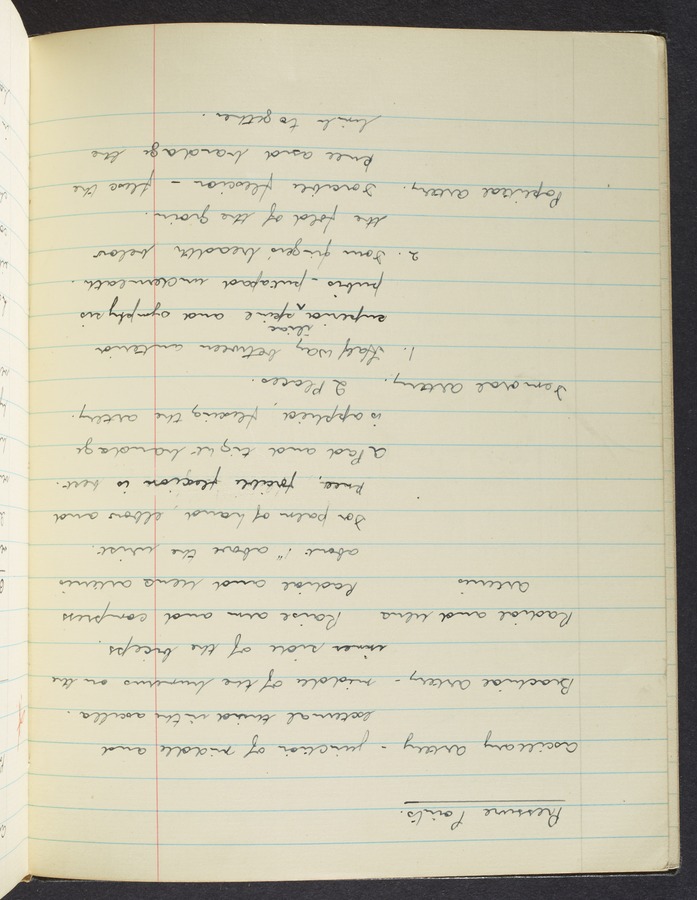 Pressure Points.
Axillary artery - junction of middle and
external third in the axilla.
Brachial artery - middle of the humerus on the
inner side of the biceps.
Radial and ulna Raise arm and compress
arteries Radial and ulna arteries
about 1" above the wrist.
For palm of hand, elbow and
knee, forcible flexion is best.
A Pad and tight bandage
is applied, flexing the artery.
Femoral artery. 2 Places.
1. Half way between anterior
iliac
superior spine and symphysis
pubis - put pad underneath.
2. Four fingers breadth below
the fold of the groin.
Popliteal artery. Forcible flexion - flex the
knee and bandage the
limb together.